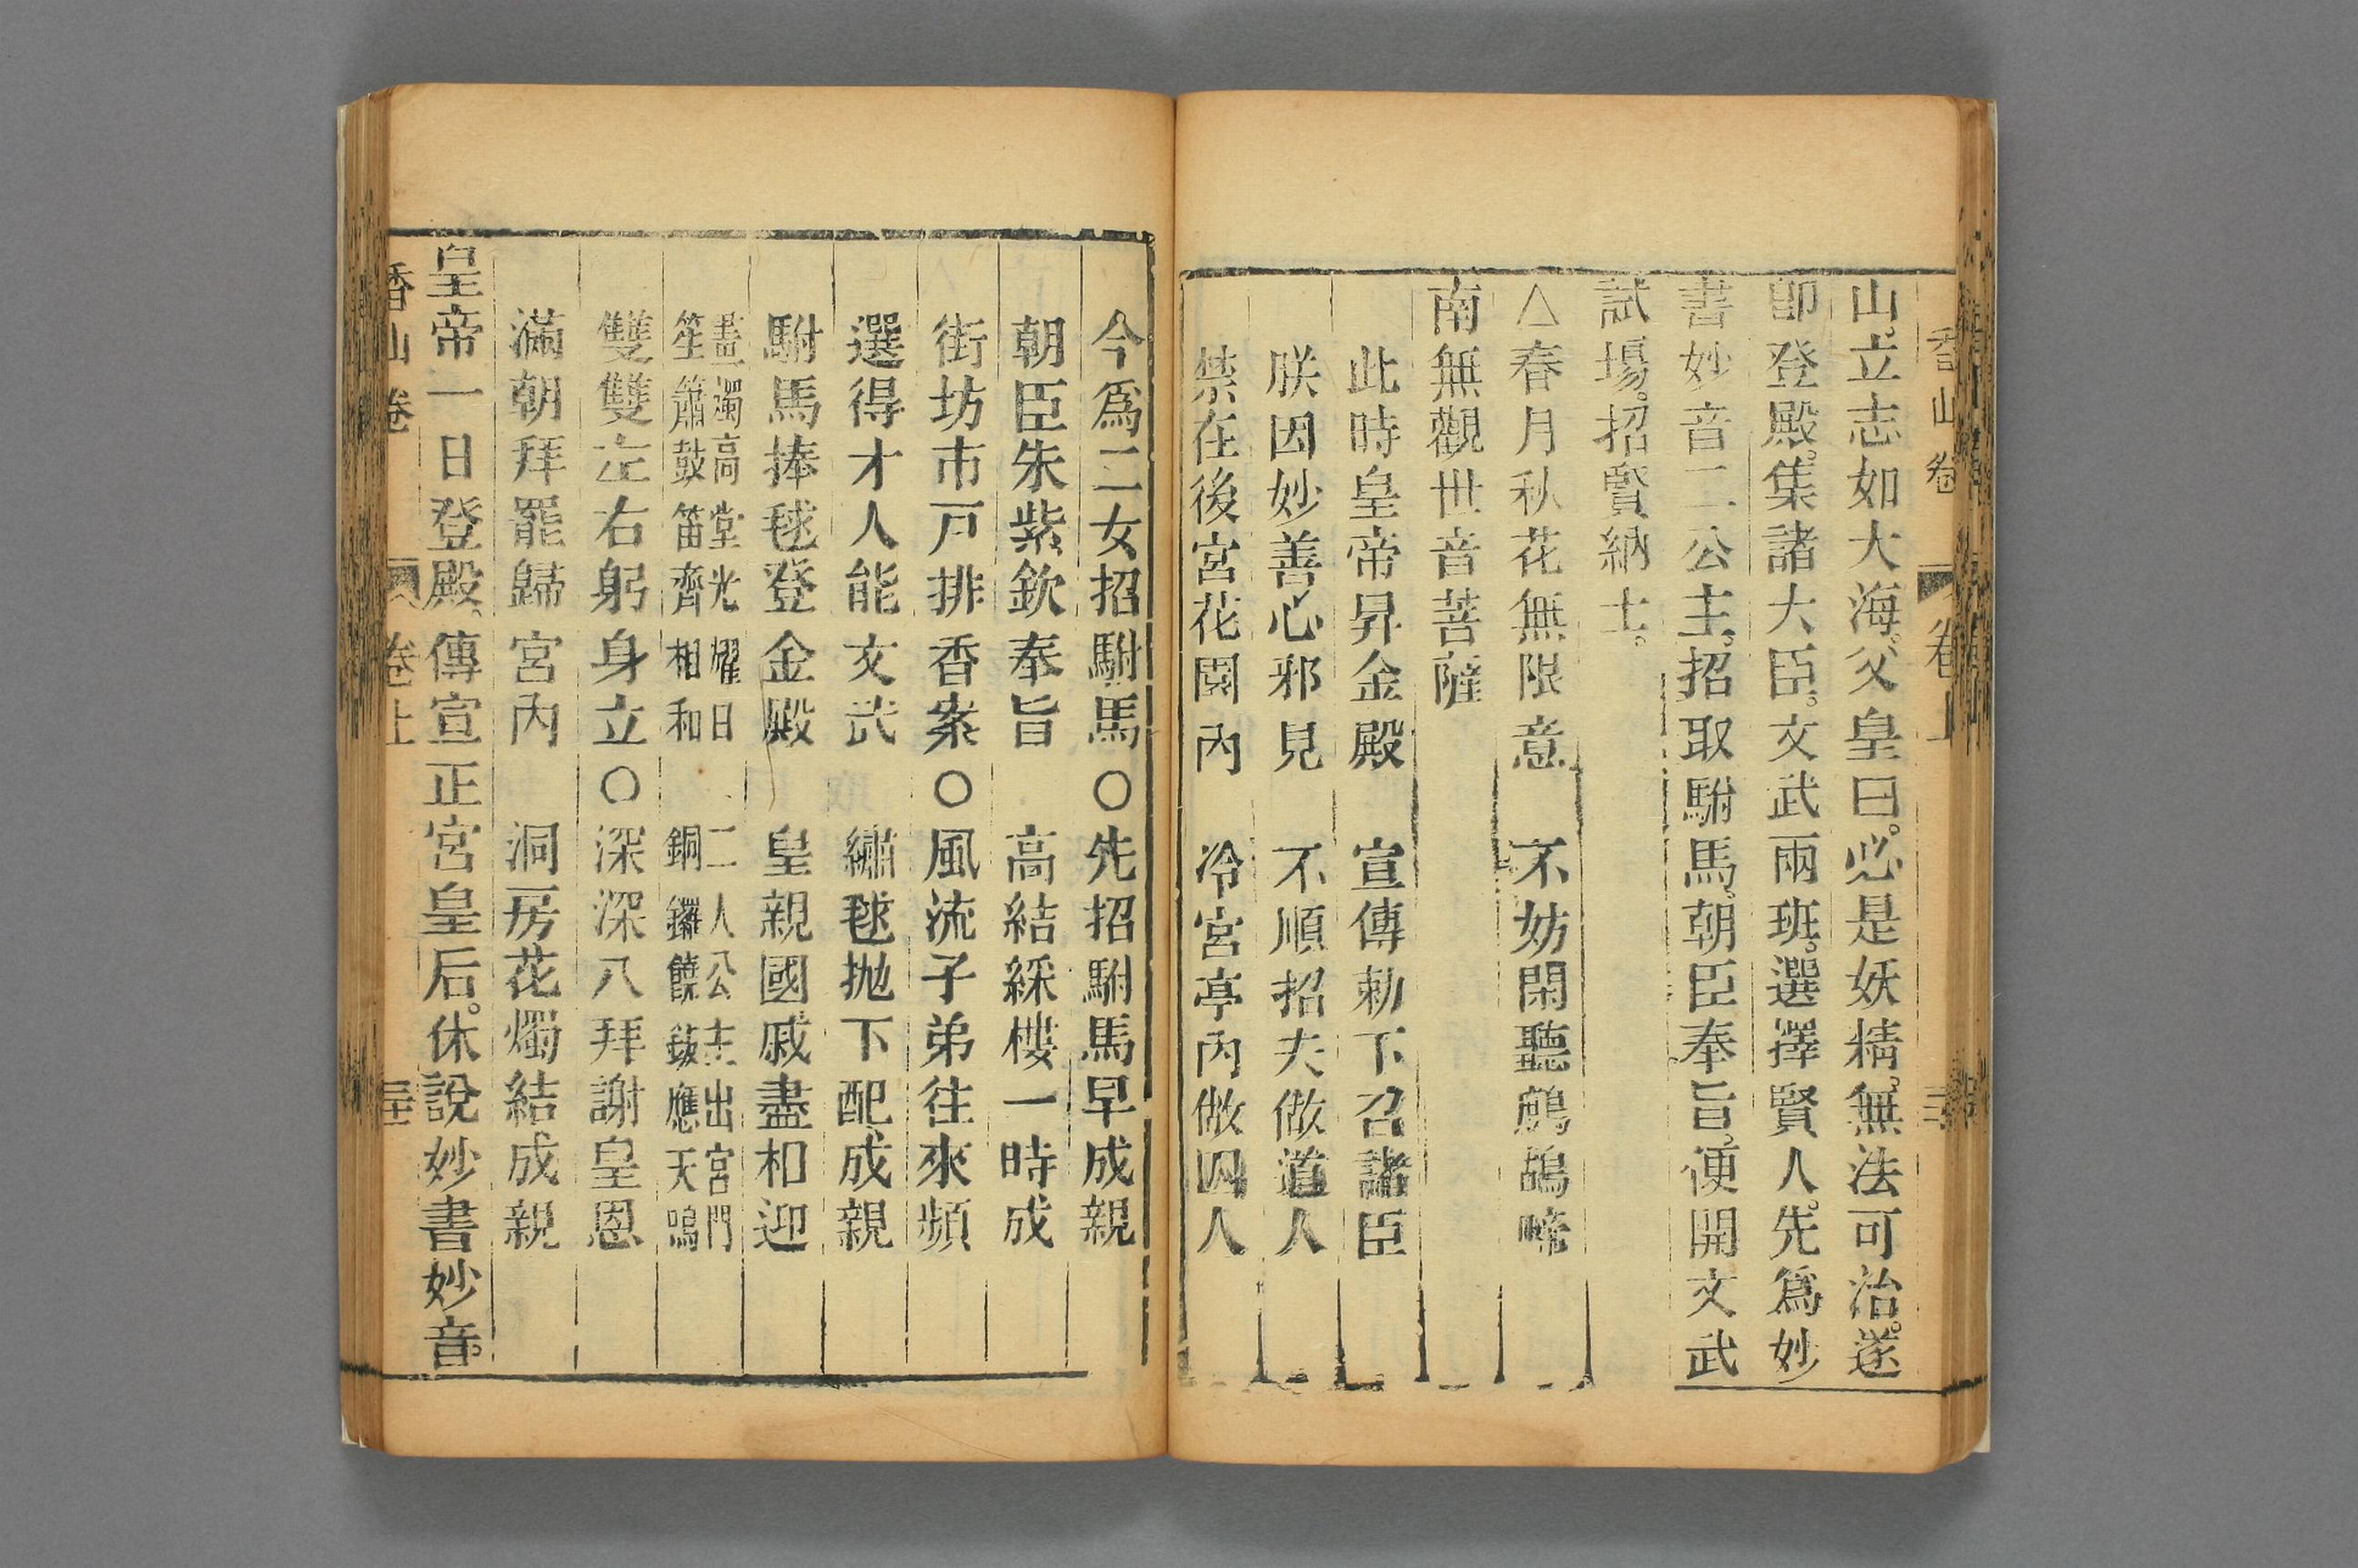 香山卷 卷上
山。立志如大海。父皇曰。必是妖精。無法可治。遂
卽登殿。集諸大臣。文武兩班。選擇賢人。先爲妙
書妙音二公主。招取駙馬。朝臣奉旨。便開文武
試場。招賢納士。
△春月秋花無限意 不妨閑聽鷓鴣啼
南無觀世音菩薩
此時皇帝昇金殿 宣傳勅下召諸臣
朕因妙善心邪見 不順招夫做道人
禁在後宮花園內 冷宮亭內做囚人
今爲二女招駙馬○先招駙馬早成親
朝臣朱紫欽奉旨 高結綵樓一時成
街坊市戸排香案○風流子弟往來頻
選得才人能文武 繡毬抛下配成親
駙馬捧毬登金殿 皇親國戚盡相迎
畫燭高堂光耀日 二人公主出宮門
笙簫鼓笛齊相和 銅鑼鐃鈸應天鳴
雙雙左右躬身立○深深八拜謝皇恩
滿朝拜罷歸宮內 洞房花燭結成親
皇帝一日登殿。傳宣正宮皇后。休說妙書妙音。
香山卷 卷上